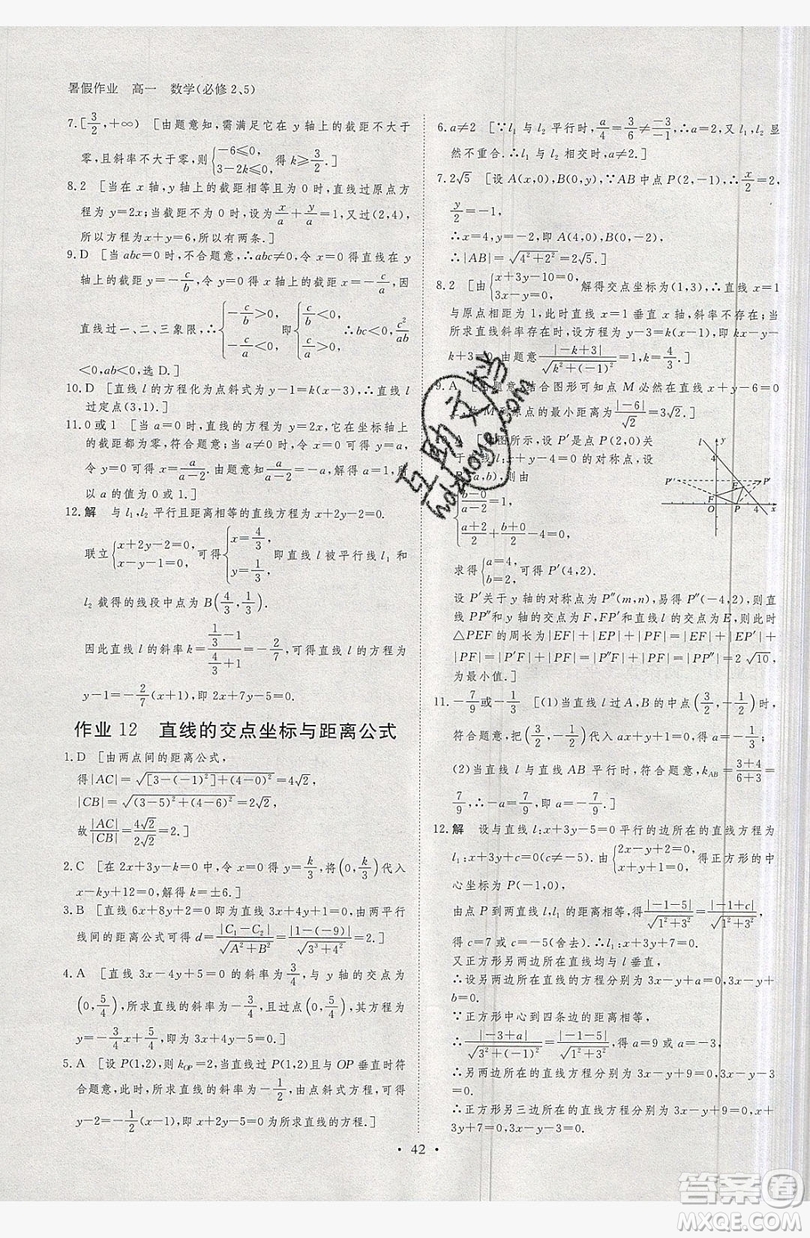 暑假作业 高一 数学(必修2、5)
7.[3/2,+∞) [由题意知,需满足它在y轴上的截距不大于
零,且斜率不小于零,则{-6≤0, 3-2k≤0, 得k≥3/2.]
8.2 [当在x轴,y轴上的截距相等且为0时,直线过原点方
程为y=2x;当截距不为0时,设x/a+y/a=1,又过(2,4),
所以方程为x+y=6,所以有2条.]
9.D [当abc=0时,不合题意,∴abc≠0,可得直线在y
轴上的截距为-c/b,令y=0,得x轴上的截距为-c/a,因
直线过一、二、三象限,∴{-c/b>0, -c/a<0, 即{c/b<0, c/a>0, ∴c²/ab
<0,∴ab<0,选D.]
10.D [直线l的方程化为点斜式为y-1=k(x-3),直线l
过定点(3,1).]
11.0或1 [当a=0时,直线方程为y=x,它在两坐标轴上的
截距都为零,符合题意;当a≠0时,由题意知a/(a-2)
=a/(a-2)·a,即a=1,所
以a的值为1或0.]
12.解 与l₁,l₂平行且距离相等的直线方程为x+2y-2=0.
联立{x+2y-2=0, x-y-1=0, 可得{x=4/3, y=1/3, 即直线l被平行线l₁,
l₂截得的线段中点为B(4/3,1/3).
因此直线l的斜率k=(1/3-1)/(4/3+1)=-2/7,直线l的方程为
y-1=-2/7(x+1),即2x+7y-5=0.
作业12 直线的交点坐标与距离公式
1.D [由两点间的距离公式,
得|AC|=√([3-(-1)]²+(4-0)²)=4√2,
|CB|=√((3-5)²+(4-6)²)=2√2,
故|AC|/|CB|=4√2/2√2=2.]
2.C [在2x+3y-k=0中,令x=0得y=k/3,将(0,k/3)代入
x-ky+12=0,解得k=±6.]
3.B [直线6x+8y+2=0可化为3x+4y+1=0,由两平行
线间的距离公式可得d=|C₁-C₂|/√(A²+B²)=|1-(-9)|/√(3²+4²)=2.]
4.A [直线3x-4y+5=0的斜率为3/4,与y轴的交点为
(0,5/4),所求直线的斜率为-3/4,且过点(0,5/4),方程为
y=-3/4x+5/4,即3x+4y-5=0.]
5.A [设P(1,2),则k_OP=2,当所求直线与OP垂直时符
合题意,此时,所求直线的斜率为-1/2,由点斜式方程可得
y-2=-1/2(x-1),即x+2y-5=0,所求直线的方程为
x+2y-5=0.]
6.a≠2 [∵l₁与l₂平行时,a/4=3/6≠-3/-1,∴a=2,又l₁,l₂显
然不重合.∴l₁与l₂相交时,a≠2.]
7.2√5 [设A(x,0),B(0,y),∵AB中点P(2,-1),∴x/2=2,
y/2=-1,
∴x=4,y=-2,即A(4,0),B(0,-2),
∴|AB|=√(4²+2²)=2√5.]
8.2 [由{x+3y-10=0, 3x-y=0, 解得交点坐标为(1,3),直线x=1
与原点距离为1符合题意,此时直线与x轴垂直,斜率不存在;当
所求直线斜率存在时,设方程为y-3=k(x-1),即kx-y-
k+3=0,由题意知|-k+3|/√(k²+1)=1,解得k=4/3.]
9.A [由题意,结合图形可知点M必然在直线x+y-6=0
M到原点的最小距离为|-6|/√2=3√2.]
图所示,设P′是点P(2,0)关
x+y-4=0的对称点,设
a,b),则由
b-0 =1, (a+2)/2+(b+0)/2-4=0,
求得{a=4, b=2, 可得P′(4,2).
设P′关于y轴的对称点为P″(m,n),易得P″(-4,2),则直
线PP″与y轴的交点为F,FP′和直线l的交点为E,此时
△PEF的周长为|EF|+|EP|+|PF|=|EF|+|EP′|
+|PF|=|P′F|+|PF|=|P″F|+|PF|=|PP″|=2√10,
为最小值.]
11.-7/9或-1/3 [(1)当直线l过点A,B的中点(3/2,7/2)时,
符合题意,∴3/2a+7/2+1=0,∴a=-1/3;
(2)当直线l与直线AB平行时,符合题意,k_AB=(3+4)/(6+3)=
7/9,∴-a=7/9,∴a=-7/9.]
12.解 设与直线l:x+3y-5=0平行的边所在的直线方程为
l₁:x+3y+c=0(c≠-5).由{2x-y+2=0, x+y+1=0, 得正方形的中
心坐标为P(-1,0),
由点P到两直线l,l₁的距离相等,得|-1-5|/√(1²+3²)=|-1+c|/√(1²+3²),
得c=7或c=-5(舍去).∴l₁:x+3y+7=0.
又正方形另两边所在直线均与l垂直,
∴设另两边所在直线的方程分别为3x-y+a=0,3x-y+
b=0.
∵正方形中心到四条边的距离相等,
∴|-3+a|/√(3²+(-1)²)=|-1-5|/√(1²+3²),得a=9或a=-3,
∴另两边所在直线的方程分别为3x-y+9=0,
3x-y-3=0.
∴正方形另三边所在直线的方程分别为3x-y+9=0,
x+3y+7=0,3x-y-3=0.
• 42 •
互助文学
hdzuoye.com
答案圈
MXQE.COM